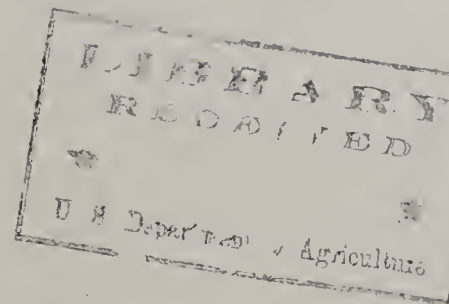 LIBRARY
RECEIVED
U S Department of Agriculture